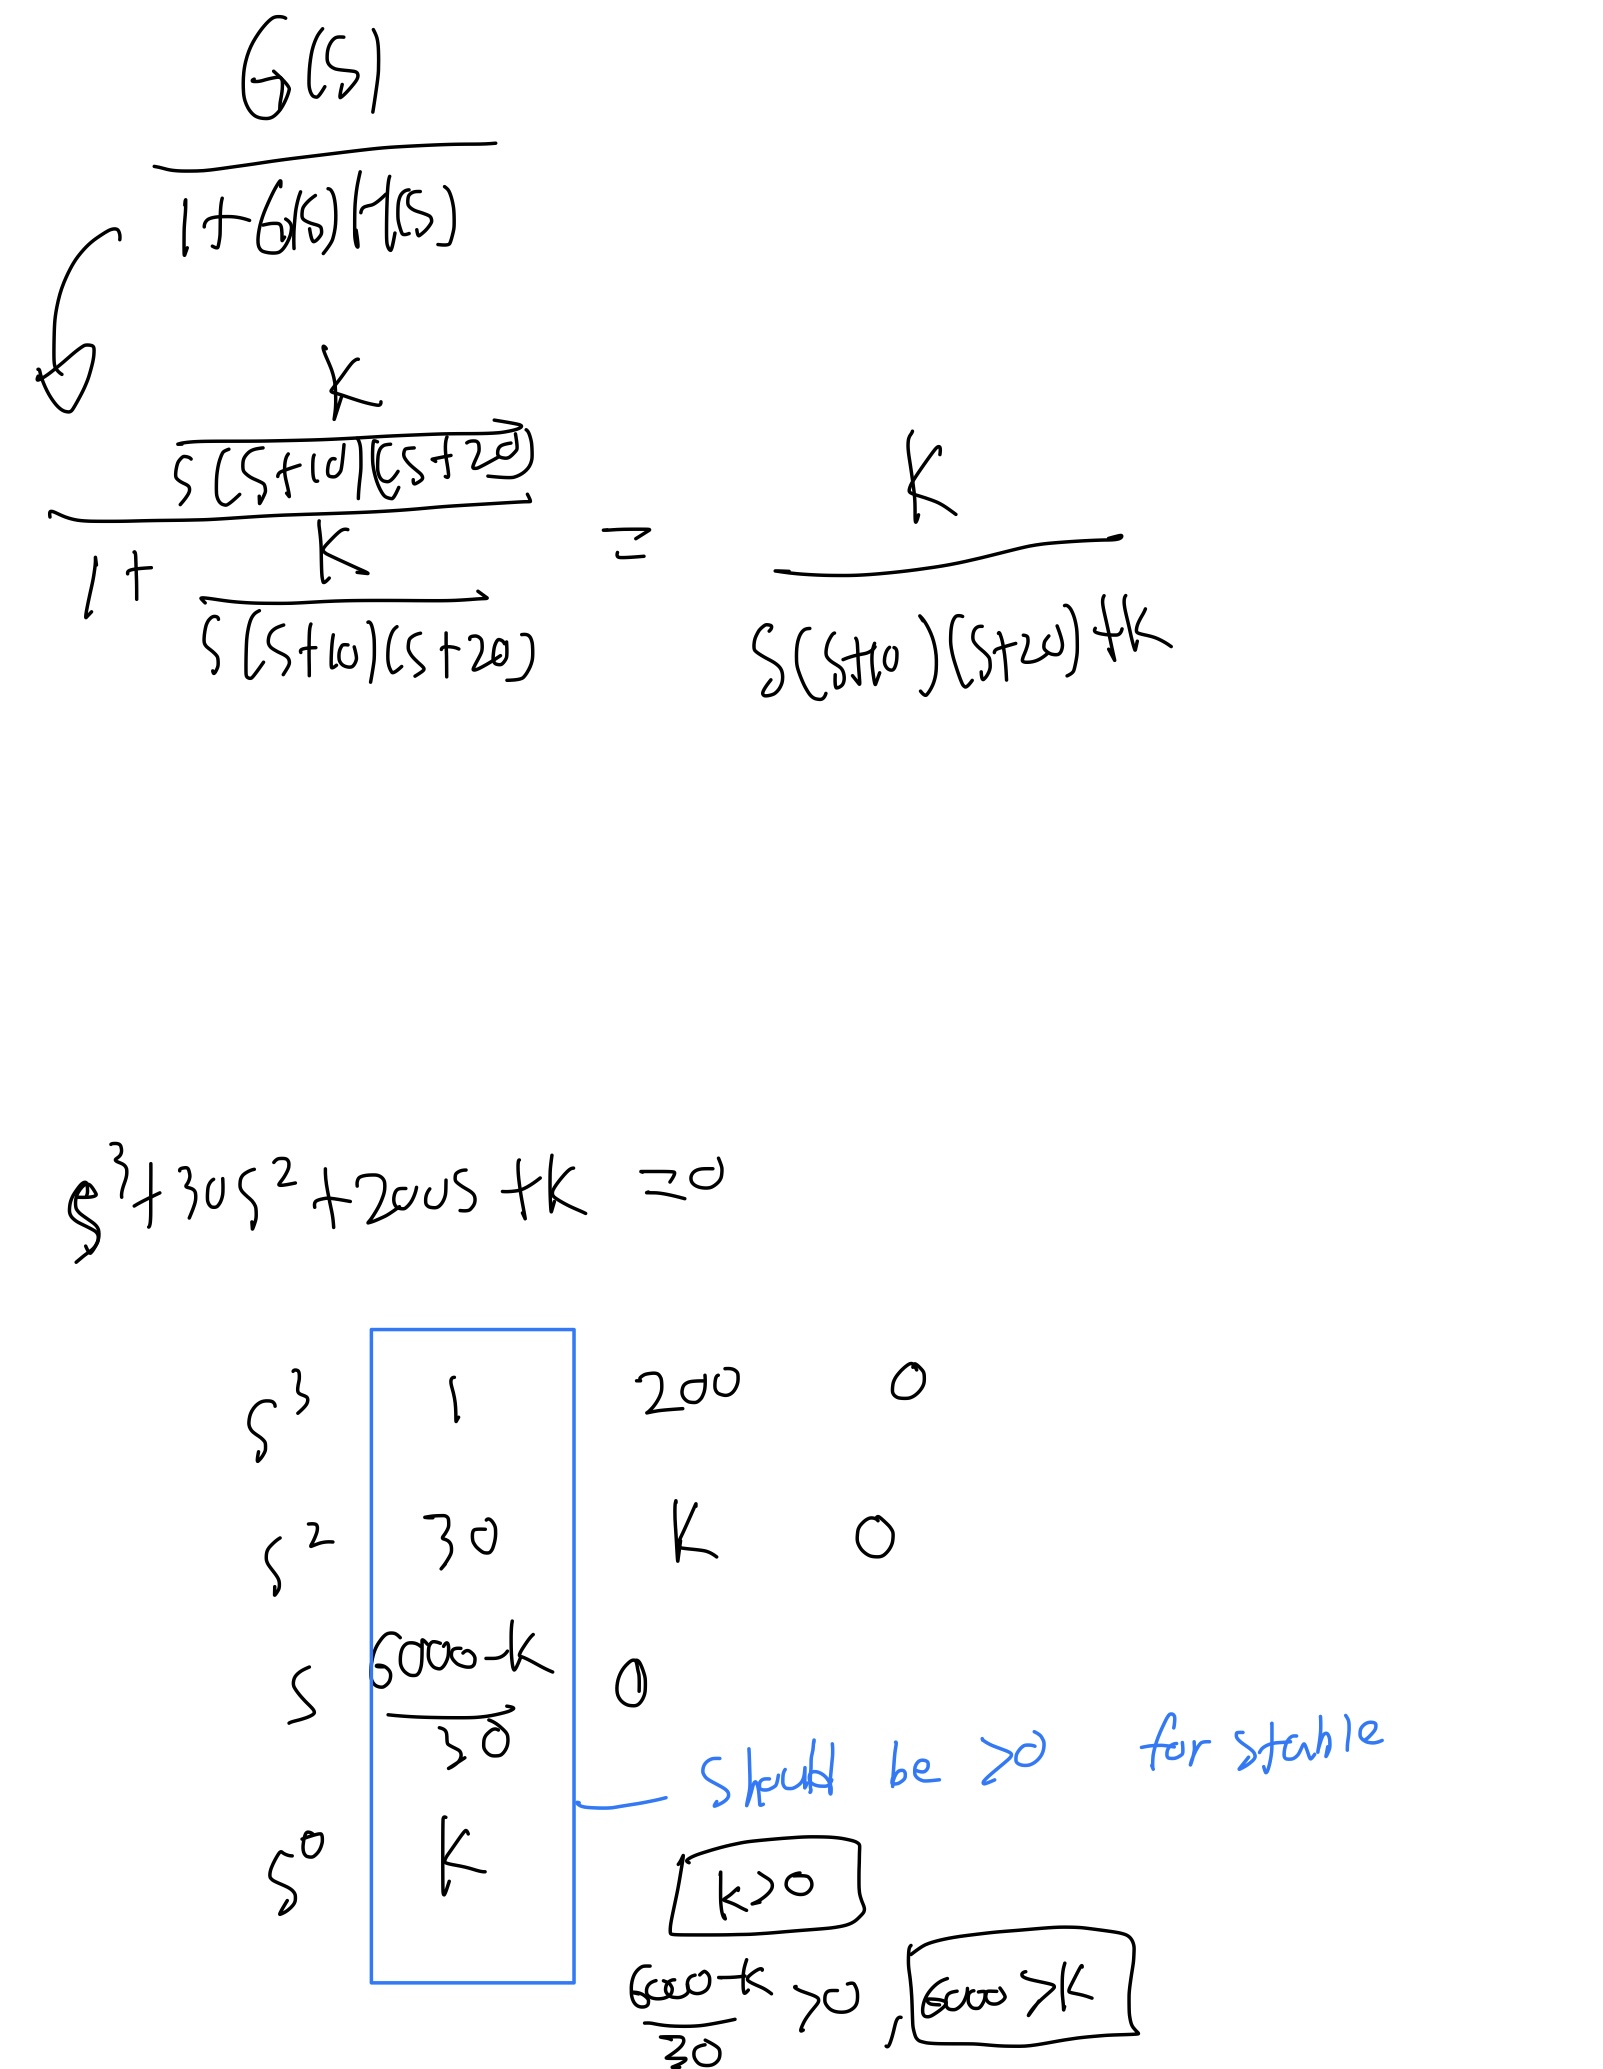 G(s)
1+G(s)H(s)
K
s(s+10)(s+20)
1+ K
s(s+10)(s+20)
=
K
s(s+10)(s+20)+K
s³+30s²+200s+K =0
s³ 1 200 0
s² 30 K 0
s 6000-K 0
30
should be >0 for stable
s⁰ K
K>0
6000-K >0 , 6000>K
30